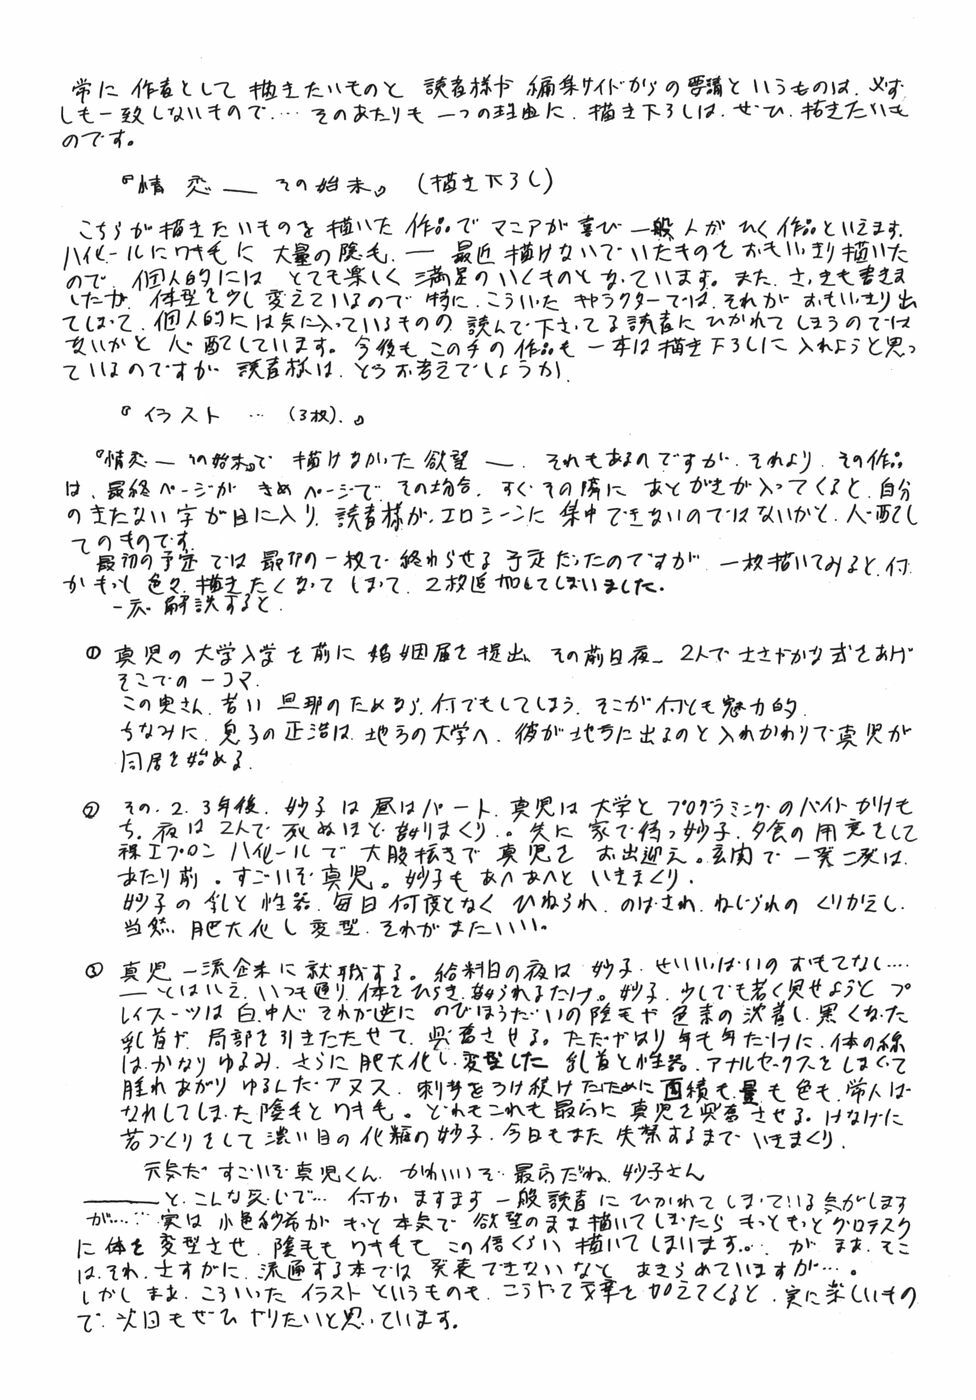 常に 作者として 描きたいものと 読者様や 編集サイドからの要請というものは、必ず
しも一致しないもので…. そのあたりも 一つの理由に、描き下ろしは、ぜひ、描きたいも
のです。
『情恋 ― その始末』 (描き下ろし)
こちらが描きたいものを描いた作品でマニアが喜び一般人がひく作品といえます。
ハイヒールにワキ毛に 大量の陰毛、― 最近描けないでいたものをおもいきり描いた
ので、個人的には とても楽しく 満足のいくものとなっています。また、さっきも書きま
したが、体型を少し変えているので特に、こういったキャラクターでは、それがおもいきり出
てしまって、個人的には気に入っているものの、読んで下さってる読者にひかれてしまうのでは
ないかと 心配しています。今後も この手の作品も 一本は描き下ろしに入れようと思っ
ているのですが 読者様は、どうお考えでしょうか、
『イラスト … (3枚)、』
『情恋―その始末』で 描けなかった欲望 ―、それもあるのですが、それより、その作品
は、最終ページが きめページで、その場合、すぐその隣に あとがきが入ってくると、自分
のきたない字が目に入り、読者様が、エロシーンに集中できないのではないかと、心配し
てのものです。
最初の予定では最初の一枚で終わらせる予定だったのですが、一枚描いてみると、何
かもっと色々描きたくなってしまって、2枚追加してしまいました.
一応 解説すると、
① 真児の大学入学を前に婚姻届を提出、その前日夜、2人でささやかな式をあげ
そこでの一コマ、
この奥さん、若い旦那のためなら、何でもしてしまう、そこが何とも魅力的、
ちなみに、息子の正浩は、地方の大学へ、彼が地方に出るのと入れかわりで真児が
同居を始める、
② その、2、3年後、妙子は昼はパート、真児は大学とプログラミングのバイトかけも
ち、夜は2人で死ぬほど、姦りまくり。。先に家で待つ妙子、夕食の用意をして
裸エプロン ハイヒールで 大股抜きで 真児を お出迎え。玄関で一発二発は、
あたり前。すごいぞ真児。妙子も あへあへと いきまくり、
妙子の乳と性器、毎日何度となくひねられ、のばされ、ねじられのくりかえし、
当然 肥大化し変型、それがまたいい。
③ 真児 一流企業に就職する。給料日の夜は 妙子、せいいっぱいのおもてなし….
―とはいえ、いつも通り、体をひらき、姦られるだけ。妙子、少しでも若く見せようとプ
レイスーツは、白、中心 それが逆に のびほうだいの陰毛や色素の沈着し、黒くなった
乳首や 局部を引きたたせて、興奮させる。ただかなり年も年だけに、体の線
は、かなりゆるみ、さらに肥大化し、変型した 乳首と性器、アナルセックスをしまくって
腫れあがり ゆるんだアヌス、刺激をうけ続けたために 面積も、量も色も、常人ば
なれしてしまった陰毛とワキ毛。どれもこれも最高に真児を興奮させる。けなげに
若づくりをして濃い目の化粧の妙子、今日もまた 失禁するまでいきまくり、
元気だ すごいぞ真児くん、かわいいぞ 最高だね 妙子さん
――と、こんな感じで… 何か ますます一般読者にひかれてしまっている気がします
が…… 実は 小色紗希が もっと本気で 欲望のまま描いてしまったら もっともっとグロテスク
に体を変型させ、陰毛もワキ毛も この倍くらい描いてしまいます。… が、まあ、そこ
は、それ、さすがに、流通する本では 発表できないなと あきらめていますが…。
しかし まあ、こういった イラストというものも、こうやって文章を加えてくると、実に楽しいもの
で、次回もぜひやりたいと思っています。